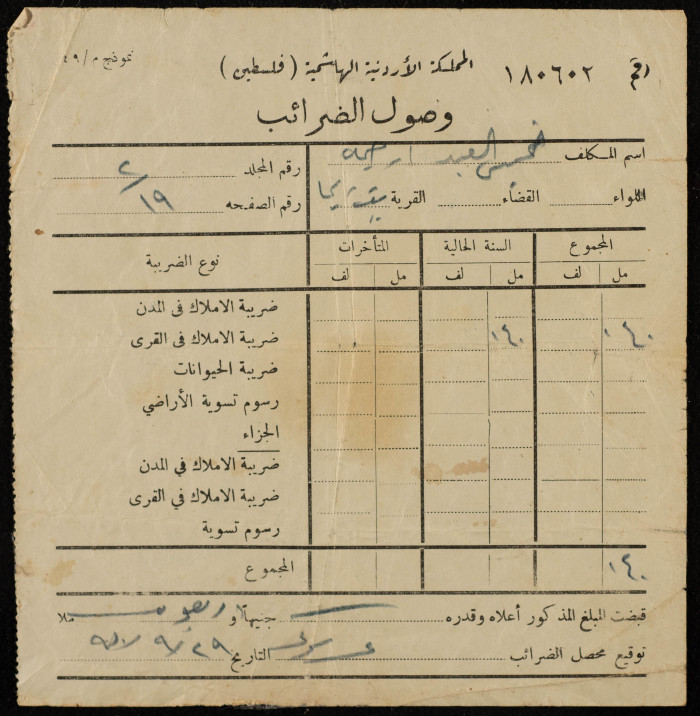 نموذج م/٤٩
المملكة الأردنية الهاشمية (فلسطين)
رقم ١٨٠٦٠٢
وصول الضرائب
اسم المكلف خميس العبد
رقم المجلد ٢
اللواء القضاء القرية
رقم الصفحه ١٩
المجموع السنة الحالية المتأخرات نوع الضريبة
مل لف مل لف مل لف
ضريبة الاملاك في المدن
١٤٠ ١٤٠ ضريبة الاملاك في القرى
ضريبة الحيوانات
رسوم تسوية الأراضي
الجزاء
ضريبة الاملاك في المدن
ضريبة الاملاك في القرى
رسوم تسوية
١٤٠ المجموع
قبضت المبلغ المذكور أعلاه وقدره جنيهاً و ملا
توقيع محصل الضرائب التاريخ ٢٩/٩/